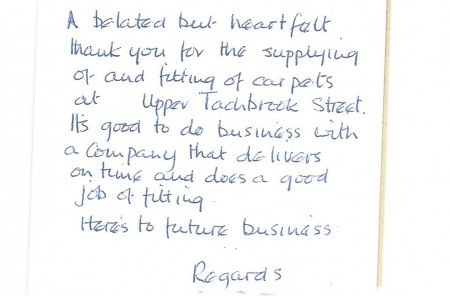 A belated but heartfelt
thank you for the supplying
of and fitting of carpets
at Upper Tachbrook Street.
It's good to do business with
a company that delivers
on time and does a good
job of fitting.
Here's to future business
Regards